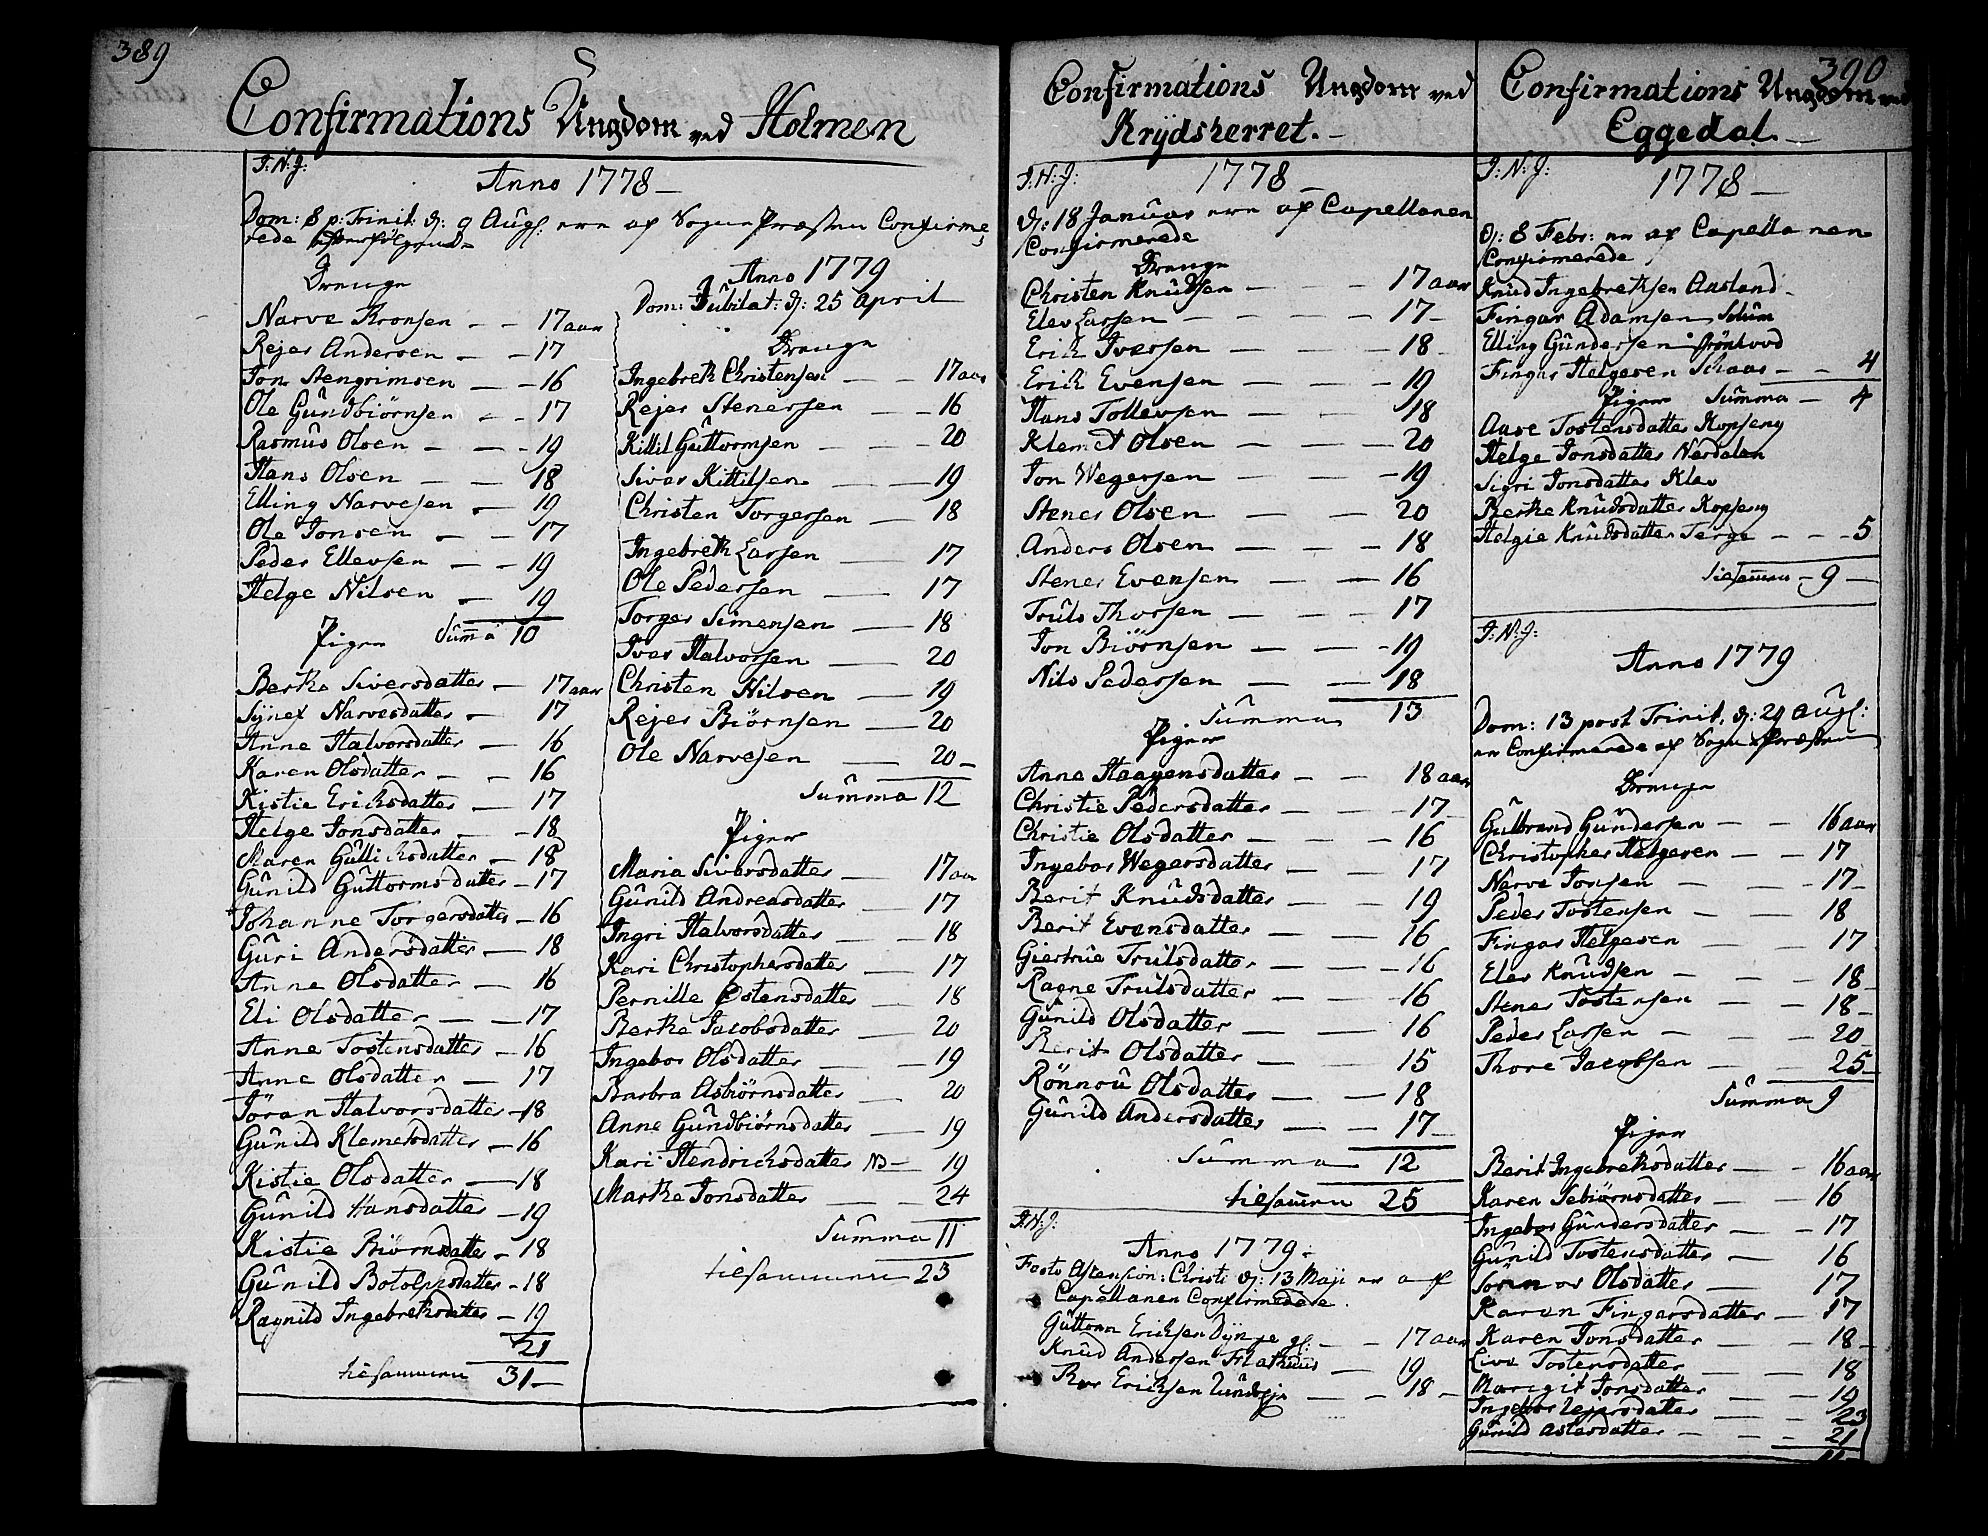 389
Confirmations Ungdom ved Holmen
I: N: J:
Anno 1778 –
Dom: 8 p: Trinit: d: 9 Aug: ere af Sogne Præsten Confirme-
rede efterfølgende
Drenge
Narve Kronsen – – 17 aar
Rejer Andersen – – 17
Jon Stengrimsen – – 16
Ole Gundbiörnsen – – 17
Rasmus Olsen – – 19
Hans Olsen – – 18
Elling Narvesen – 19
Ole Jonsen – – 17
Peder Ellevsen – – 19
Helge Nilsen – 19
Piger Summa 10
Berthe Siversdatter – 17 aar
Synev Narvesdatter – 17
Anne Halvorsdatter – 16
Karen Olsdatter – – 16
Kistie Ericksdatter – 17
Helge Jonsdatter – – 18
Maren Gullichsdatter – 18
Gunild Guttormsdatter – 17
Johanne Torgersdatter – 16
Guri Andersdatter – 18
Anne Olsdatter – 16
Eli Olsdatter – – 17
Anne Tostensdatter – 16
Anne Olsdatter – 17
Jöran Halvorsdatter – 18
Gunild Klemetsdatter – 16
Kistie Olsdatter – 18
Gunild Hansdatter – 19
Kistie Biörnsdatter – 18
Gunild Botolphsdatter – 18
Ragnild Ingebrethsdatter – 19
21
tilsammen 31 –
Anno 1779
Dom: Jubilat: d: 25 April
Drenge
Ingebreth Christensen – – 17 aar
Rejer Stenersen – – 16
Kittil Guttormsen – – 20
Siver Kittilsen – – 19
Christen Torgersen – 18
Ingebreth Larsen – 17
Ole Pedersen – 17
Torger Simensen – 18
Iver Halvorsen – 20
Christen Nilsen – 19
Rejer Biörnsen – 20
Ole Narvesen – 20 –
Summa 12
Piger
Maria Siversdatter – 17 aar
Gunild Andreasdatter – 17
Ingri Halvorsdatter – 18
Kari Christophersdatter – 17
Pernille Ostensdatter – 18
Berthe Jacobsdatter – 20
Ingebor Olsdatter – – 19
Barbra Asbiörnsdatter – 20
Anne Gundbiörnsdatter – 19
Kari Hendrichsdatter NB – 19
Marthe Jonsdatter – – 24
Summa 11
tilsammen 23
Confirmations Ungdom ved
Krydsherret. –
I: N: J:
1778 –
d: 18 Januar ere af Capellanen
Confirmerede
Drenge
Christen Knudsen – – – 17 aar
Elev Larsen – – – – 17 –
Erich Iversen – – – 18
Erich Evensen – – – 19
Hans Tollevsen – – – 18
Klemet Olsen – – – 20
Jon Wegersen – – – 19
Stener Olsen – – – 20
Anders Olsen – – – 18
Stener Evensen – – 16
Truls Thorsen – – – 17
Jon Biörnsen – – – 19
Nils Pedersen – – 18
Summa 13
Piger
Anne Haagensdatter – – 18 aar
Christie Pedersdatter – – – 17
Christie Olsdatter – – – 16
Ingebor Wegersdatter – – 17
Berit Knudsdatter – – 19
Berit Evensdatter – – 16
Giertrue Trulsdatter – – – 16
Ragne Trulsdatter – – – 16
Gunild Olsdatter – – 16
Berit Olsdatter – – 15
Rönnou Olsdatter – – 18
Gunild Andersdatter – – 17 –
Summa 12
tilsammen 25
I: N: J:
Anno 1779 –
Festo Ascension: Christi d: 13 Maji ere af
Capellanen Confirmerede.
Guttorm Ericksen gl: – – 17 aar
Knud Andersen – 19
Ericksen – – 18 –
390
Confirmations Ungdom ved
Eggedal. –
I: N: J:
1778 –
d: 8 Febr: ere af Capellanen
Confirmerede
Knud Ingebrethsen Aasland –
Fingar Adamsen Solum
Elling Gundersen Grönhovd
Fingar Helgesen Skaar – – 4
Piger Summa – 4
Aase Tostensdatter Kopseng
Helge Jonsdatter Nerdalen
Sigri Jonsdatter Klev
Berthe Knudsdatter Kopseng
Helgie Knudsdatter Terge – – – 5
tilsammen – 9 –
I: N: J:
Anno 1779
Dom: 13 post Trinit. d: 29 Aug:
ere Confirmerede af Sogne Præsten
Drenge
Gulbrand Gundersen – – 16 aar
Christopher Helgesen – – 17
Narve Jonsen – – – 17 –
Peder Tostensen – – 18
Fingar Helgesen – – 17
Elev Knudsen – – 18 –
Stener Tostensen – – 18 –
Peder Larsen – – – 20 –
Thore Jacobsen – – 25 –
Summa 9
Piger
Berit Ingebrethsdatter – – 16 aar
Karen Sebiörnsdatter – – 16
Ingebor Gundersdatter – – 17
Gunild Tostensdatter – 16
Olsdatter – 17
Karen Fingarsdatter – 17
Karen Jonsdatter – 18 –
Live Tostensdatter – – 18
Maregit Jonsdatter – – 19
Ingebor Rejersdatter – – 23
Gunild Aslesdatter – – – 21
11